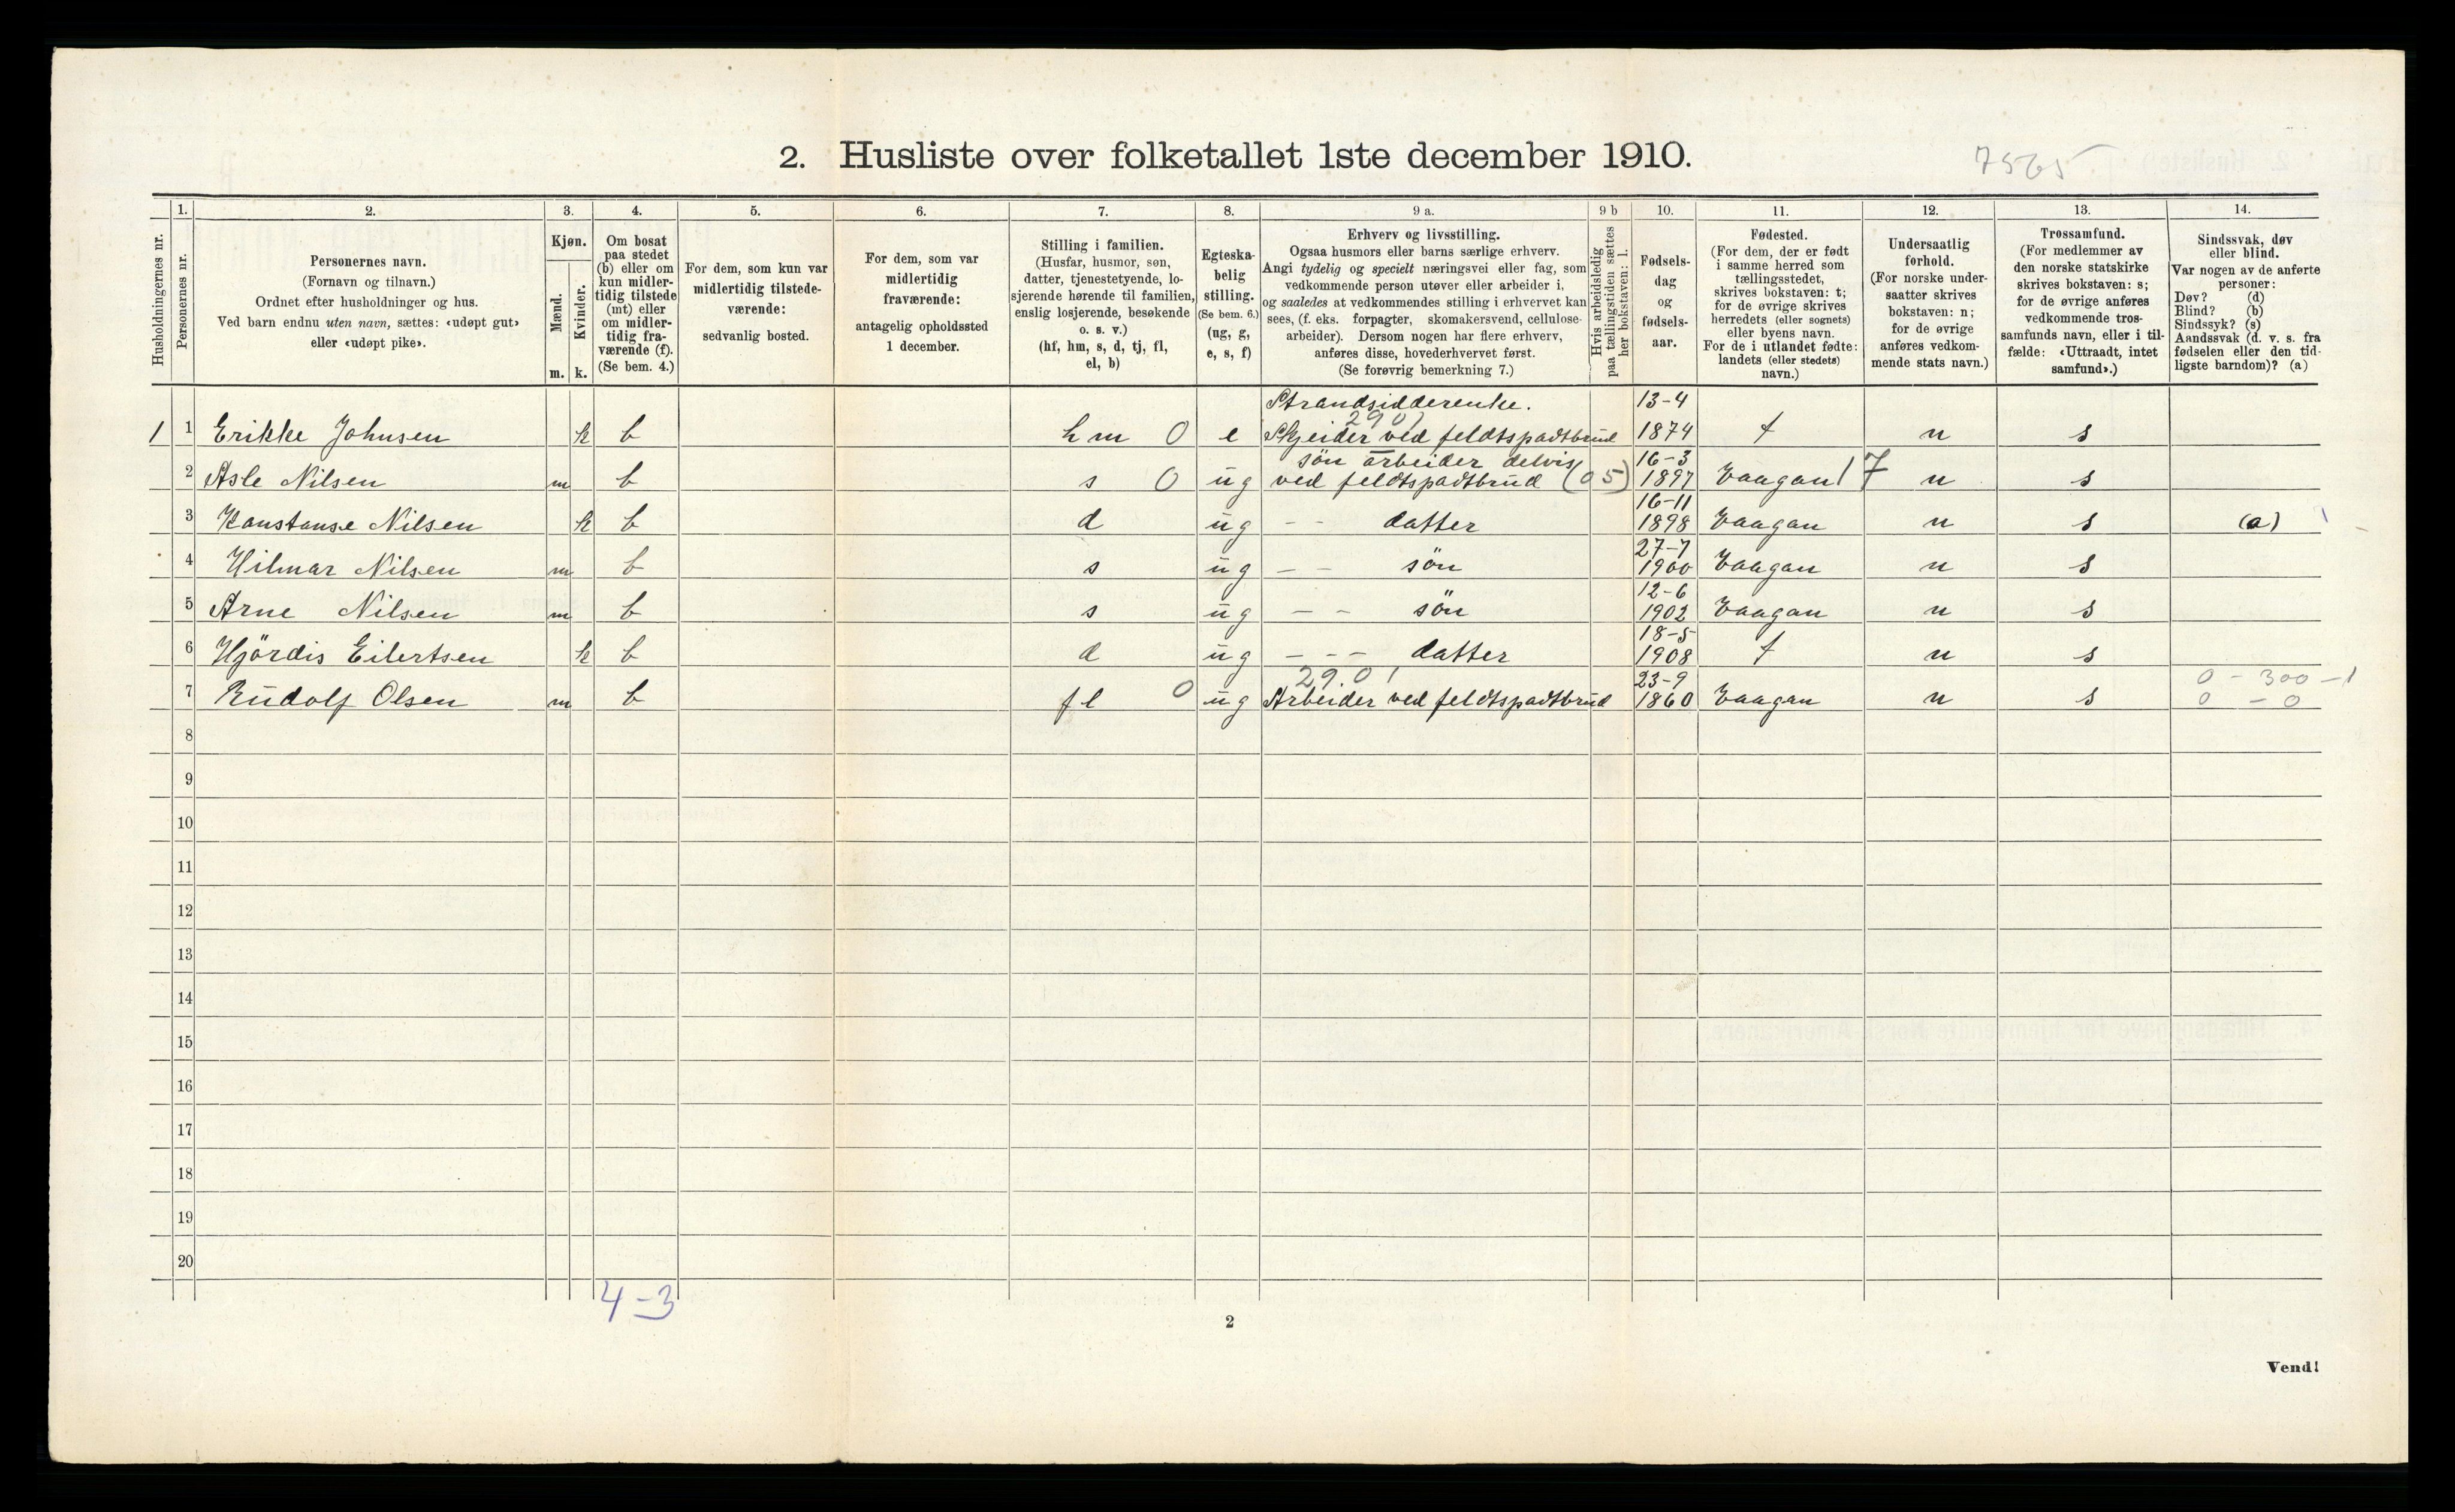 2. Husliste over folketallet 1ste december 1910.
7565
Husholdningernes nr.
1.
Personernes nr.
2.
Personernes navn.
(Fornavn og tilnavn.)
Ordnet efter husholdninger og hus.
Ved barn endnu uten navn, sættes: «udøpt gut»
eller «udøpt pike».
3.
Kjøn.
Mænd.
Kvinder.
m. k.
4.
Om bosat
paa stedet
(b) eller om
kun midler-
tidig tilstede
(mt) eller
om midler-
tidig fra-
værende (f).
(Se bem. 4.)
5.
For dem, som kun var
midlertidig tilstede-
værende:
sedvanlig bosted.
6.
For dem, som var
midlertidig
fraværende:
antagelig opholdssted
1 december.
7.
Stilling i familien.
(Husfar, husmor, søn,
datter, tjenestetyende, lo-
sjerende hørende til familien,
enslig losjerende, besøkende
o. s. v.)
(hf, hm, s, d, tj, fl,
el, b)
8.
Egteska-
belig
stilling.
(Se bem. 6.)
(ug, g,
e, s, f)
9 a.
Erhverv og livsstilling.
Ogsaa husmors eller barns særlige erhverv.
Angi tydelig og specielt næringsvei eller fag, som
vedkommende person utøver eller arbeider i,
og saaledes at vedkommendes stilling i erhvervet kan
sees, (f. eks. forpagter, skomakersvend, cellulose-
arbeider). Dersom nogen har flere erhverv,
anføres disse, hovederhvervet først.
(Se forøvrig bemerkning 7.)
9 b
Hvis arbeidsledig
paa tællingstiden sættes
her bokstaven: l.
10.
Fødsels-
dag
og
fødsels-
aar.
11.
Fødested.
(For dem, der er født
i samme herred som
tællingsstedet,
skrives bokstaven: t;
for de øvrige skrives
herredets (eller sognets)
eller byens navn.
For de i utlandet fødte:
landets (eller stedets)
navn.)
12.
Undersaatlig
forhold.
(For norske under-
saatter skrives
bokstaven: n;
for de øvrige
anføres vedkom-
mende stats navn.)
13.
Trossamfund.
(For medlemmer av
den norske statskirke
skrives bokstaven: s;
for de øvrige anføres
vedkommende tros-
samfunds navn, eller i til-
fælde: «Uttraadt, intet
samfund».)
14.
Sindssvak, døv
eller blind.
Var nogen av de anførte
personer:
Døv? (d)
Blind? (b)
Sindssyk? (s)
Aandssvak (d. v. s. fra
fødselen eller den tid-
ligste barndom)? (a)
Strandsidderenke. 13-4
1 1 Erikke Johnsen k b hm 0 e ved feldtspadtbrud 1874 t n s
søn arbeider delvis 16-3
2 Asle Nilsen m b s 0 ug ved feldtspadtbrud (05) 1897 Vaagan 17 n s
16-11
3 Konstanse Nilsen k b d ug – – datter 1898 Vaagan n s (a)
27-7
4 Hilmar Nilsen m b s ug – – søn 1900 Vaagan n s
12-6
5 Arne Nilsen m b s ug – – søn 1902 Vaagan n s
18-5
6 Hjördis Eilertsen k b d ug – – – datter 1908 t n s
29.01 23-9 0 – 300 – 1
7 Rudolf Olsen m b fl 0 ug Arbeider ved feldtspadtbrud 1860 Vaagan n s 0 – 0
8
9
10
11
12
13
14
15
16
17
18
19
20
4-3
2
Vend!